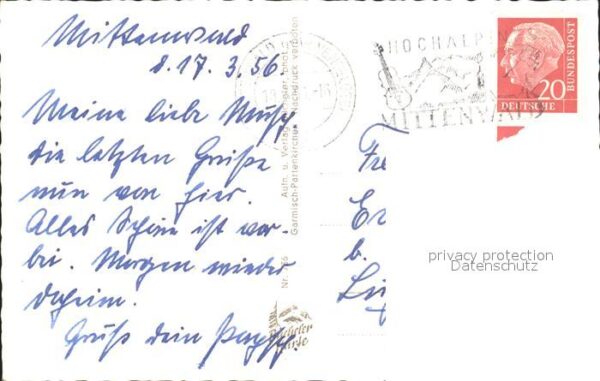 Mittenwald
d. 17. 3. 56.
Meine liebe
die letzten Grüße
nun von hier.
Alles Schöne ist vor-
bei. Morgen wieder
daheim.
Gruß dein
HOCHALP
MITTENWALD
20
DEUTSCHE
BUNDESPOST
Fr
Er
b.
privacy protection
Datenschutz
Aufn. u. Verlag
Nachdruck verboten
Garmisch-Partenkirchen